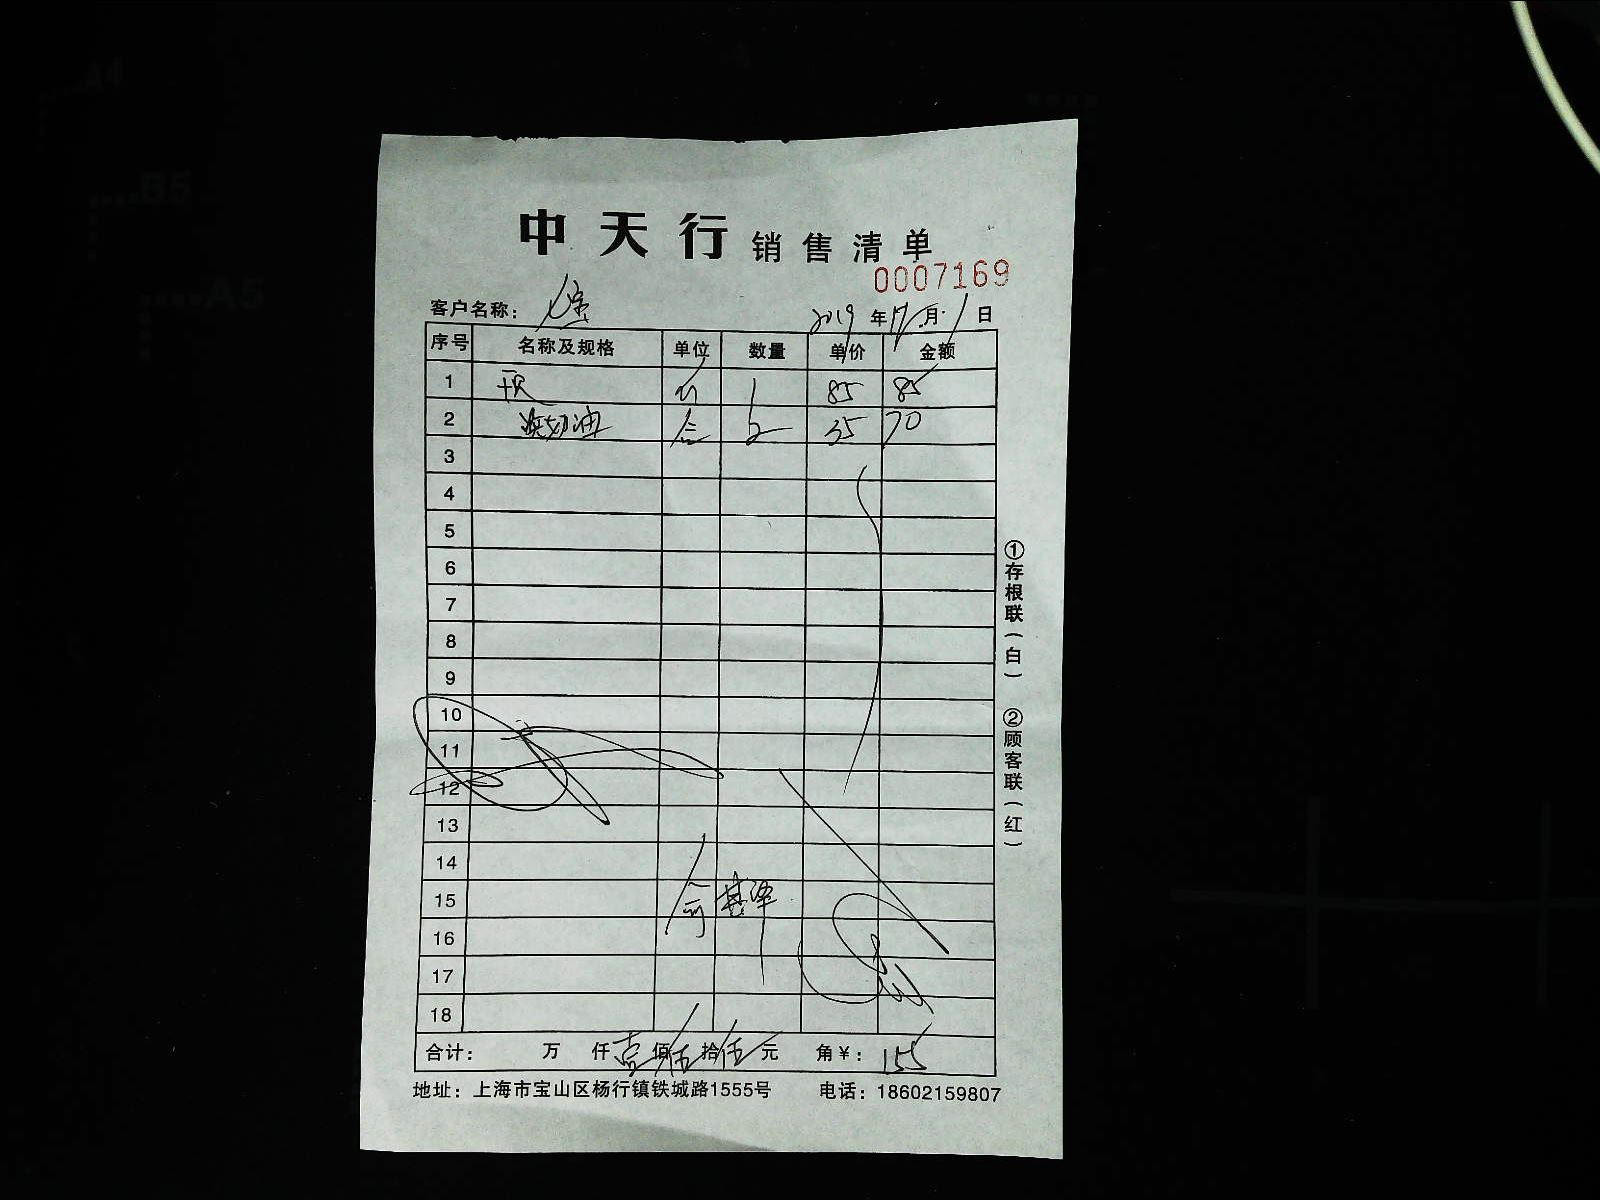 中天行 销售清单
0007169
客户名称：
2019年12月1日
序号 名称及规格 单位 数量 单价 金额
1 1 85 85
2 淡奶油 合 2 35 70
3
4
5
6
7
8
9
10
11
12
13
14
15
16
17
18
合计： 万 仟 壹 佰 伍 拾 伍 元 角 ¥：155
地址：上海市宝山区杨行镇铁城路1555号 电话：18602159807
①存根联（白） ②顾客联（红）
A4
B5
A5